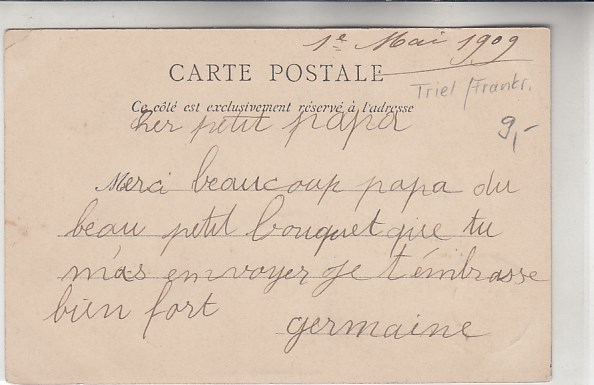 1e Mai 1909
CARTE POSTALE
Triel /Frankr.
Ce côté est exclusivement réservé à l'adresse
Cher petit papa
9,-
Merci beaucoup papa du
beau petit bouquet que tu
m'as envoyer Je t'émbrasse
bien fort
germaine